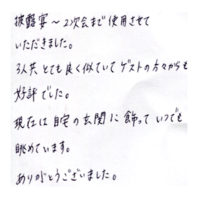 披露宴～2次会まで使用させて
いただきました。
3人共とても良く似ていてゲストの方々からも
好評でした。
現在は自宅の玄関に飾っていつでも
眺めています。
ありがとうございました。